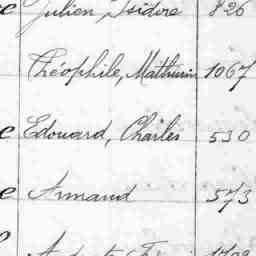 e Julien Isidore 826
Théophile, Mathurin 1067
e Edouard, Charles 530
e Armand 573